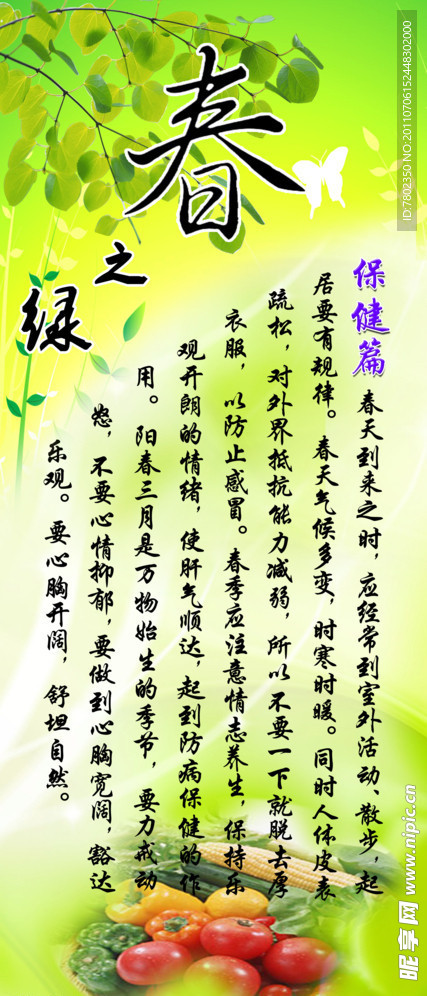 春
之
绿
保健篇
春天到来之时，应经常到室外活动、散步，起
居要有规律。春天气候多变，时寒时暖。同时人体皮表
疏松，对外界抵抗能力减弱，所以不要一下就脱去厚
衣服，以防止感冒。春季应注意情志养生，保持乐
观开朗的情绪，使肝气顺达，起到防病保健的作
用。阳春三月是万物始生的季节，要力戒动
怒，不要心情抑郁，要做到心胸宽阔，豁达
乐观。要心胸开阔，舒坦自然。
ID:7802350 NO:20110706152448302000
昵享网 www.nipic.cn